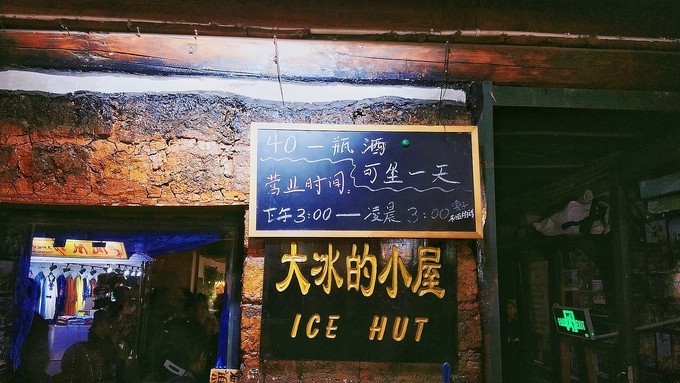 40一瓶酒
可坐一天
营业时间:
下午3:00—凌晨3:00
大冰的小屋
ICE HUT